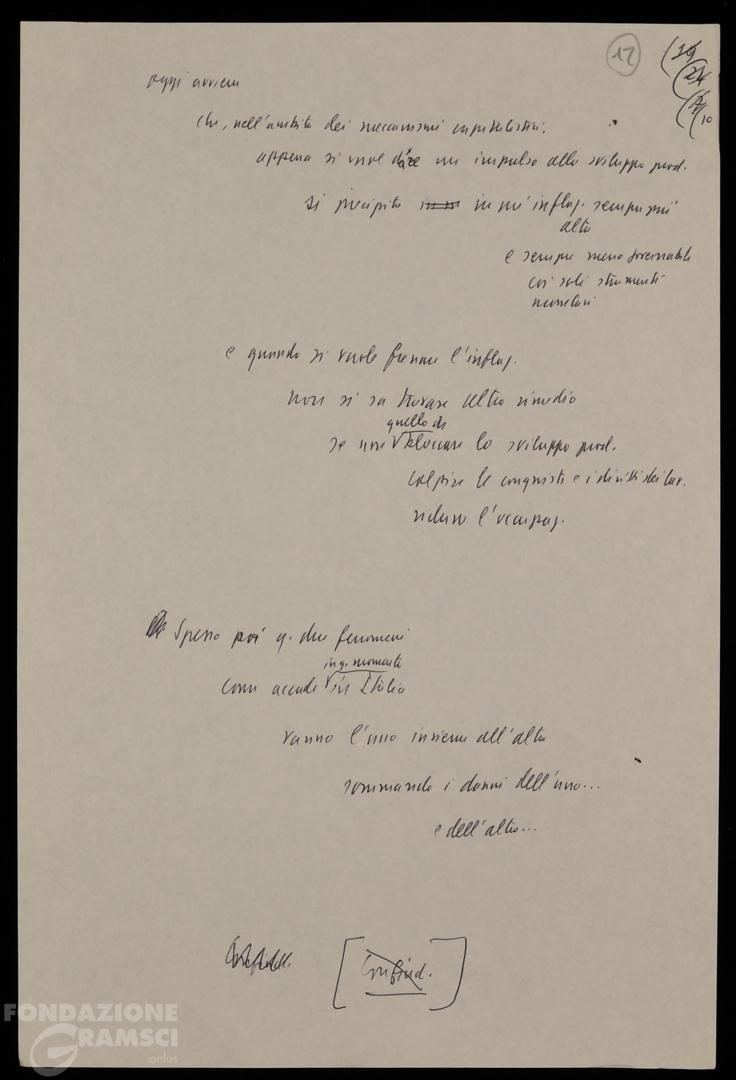 17
(19
(24
(7/10
oggi avviene
che, nell'ambito dei meccanismi capitalistici,
appena si vuol dare un impulso allo sviluppo prod.
si precipita in un'inflaz. sempre più
alta
e sempre meno governabile
coi soli strumenti
monetari
e quando si vuole frenare l'inflaz.
non si sa trovare altro rimedio
quello di
se non bloccare lo sviluppo prod.
colpire le conquiste e i diritti dei lav.
ridurre l'occupaz.
Spesso poi q. due fenomeni
in q. momento
come accade in Italia
vanno l'uno insieme all'altro
sommando i danni dell'uno...
e dell'altro...
[Confind.]
FONDAZIONE
GRAMSCI
onlus